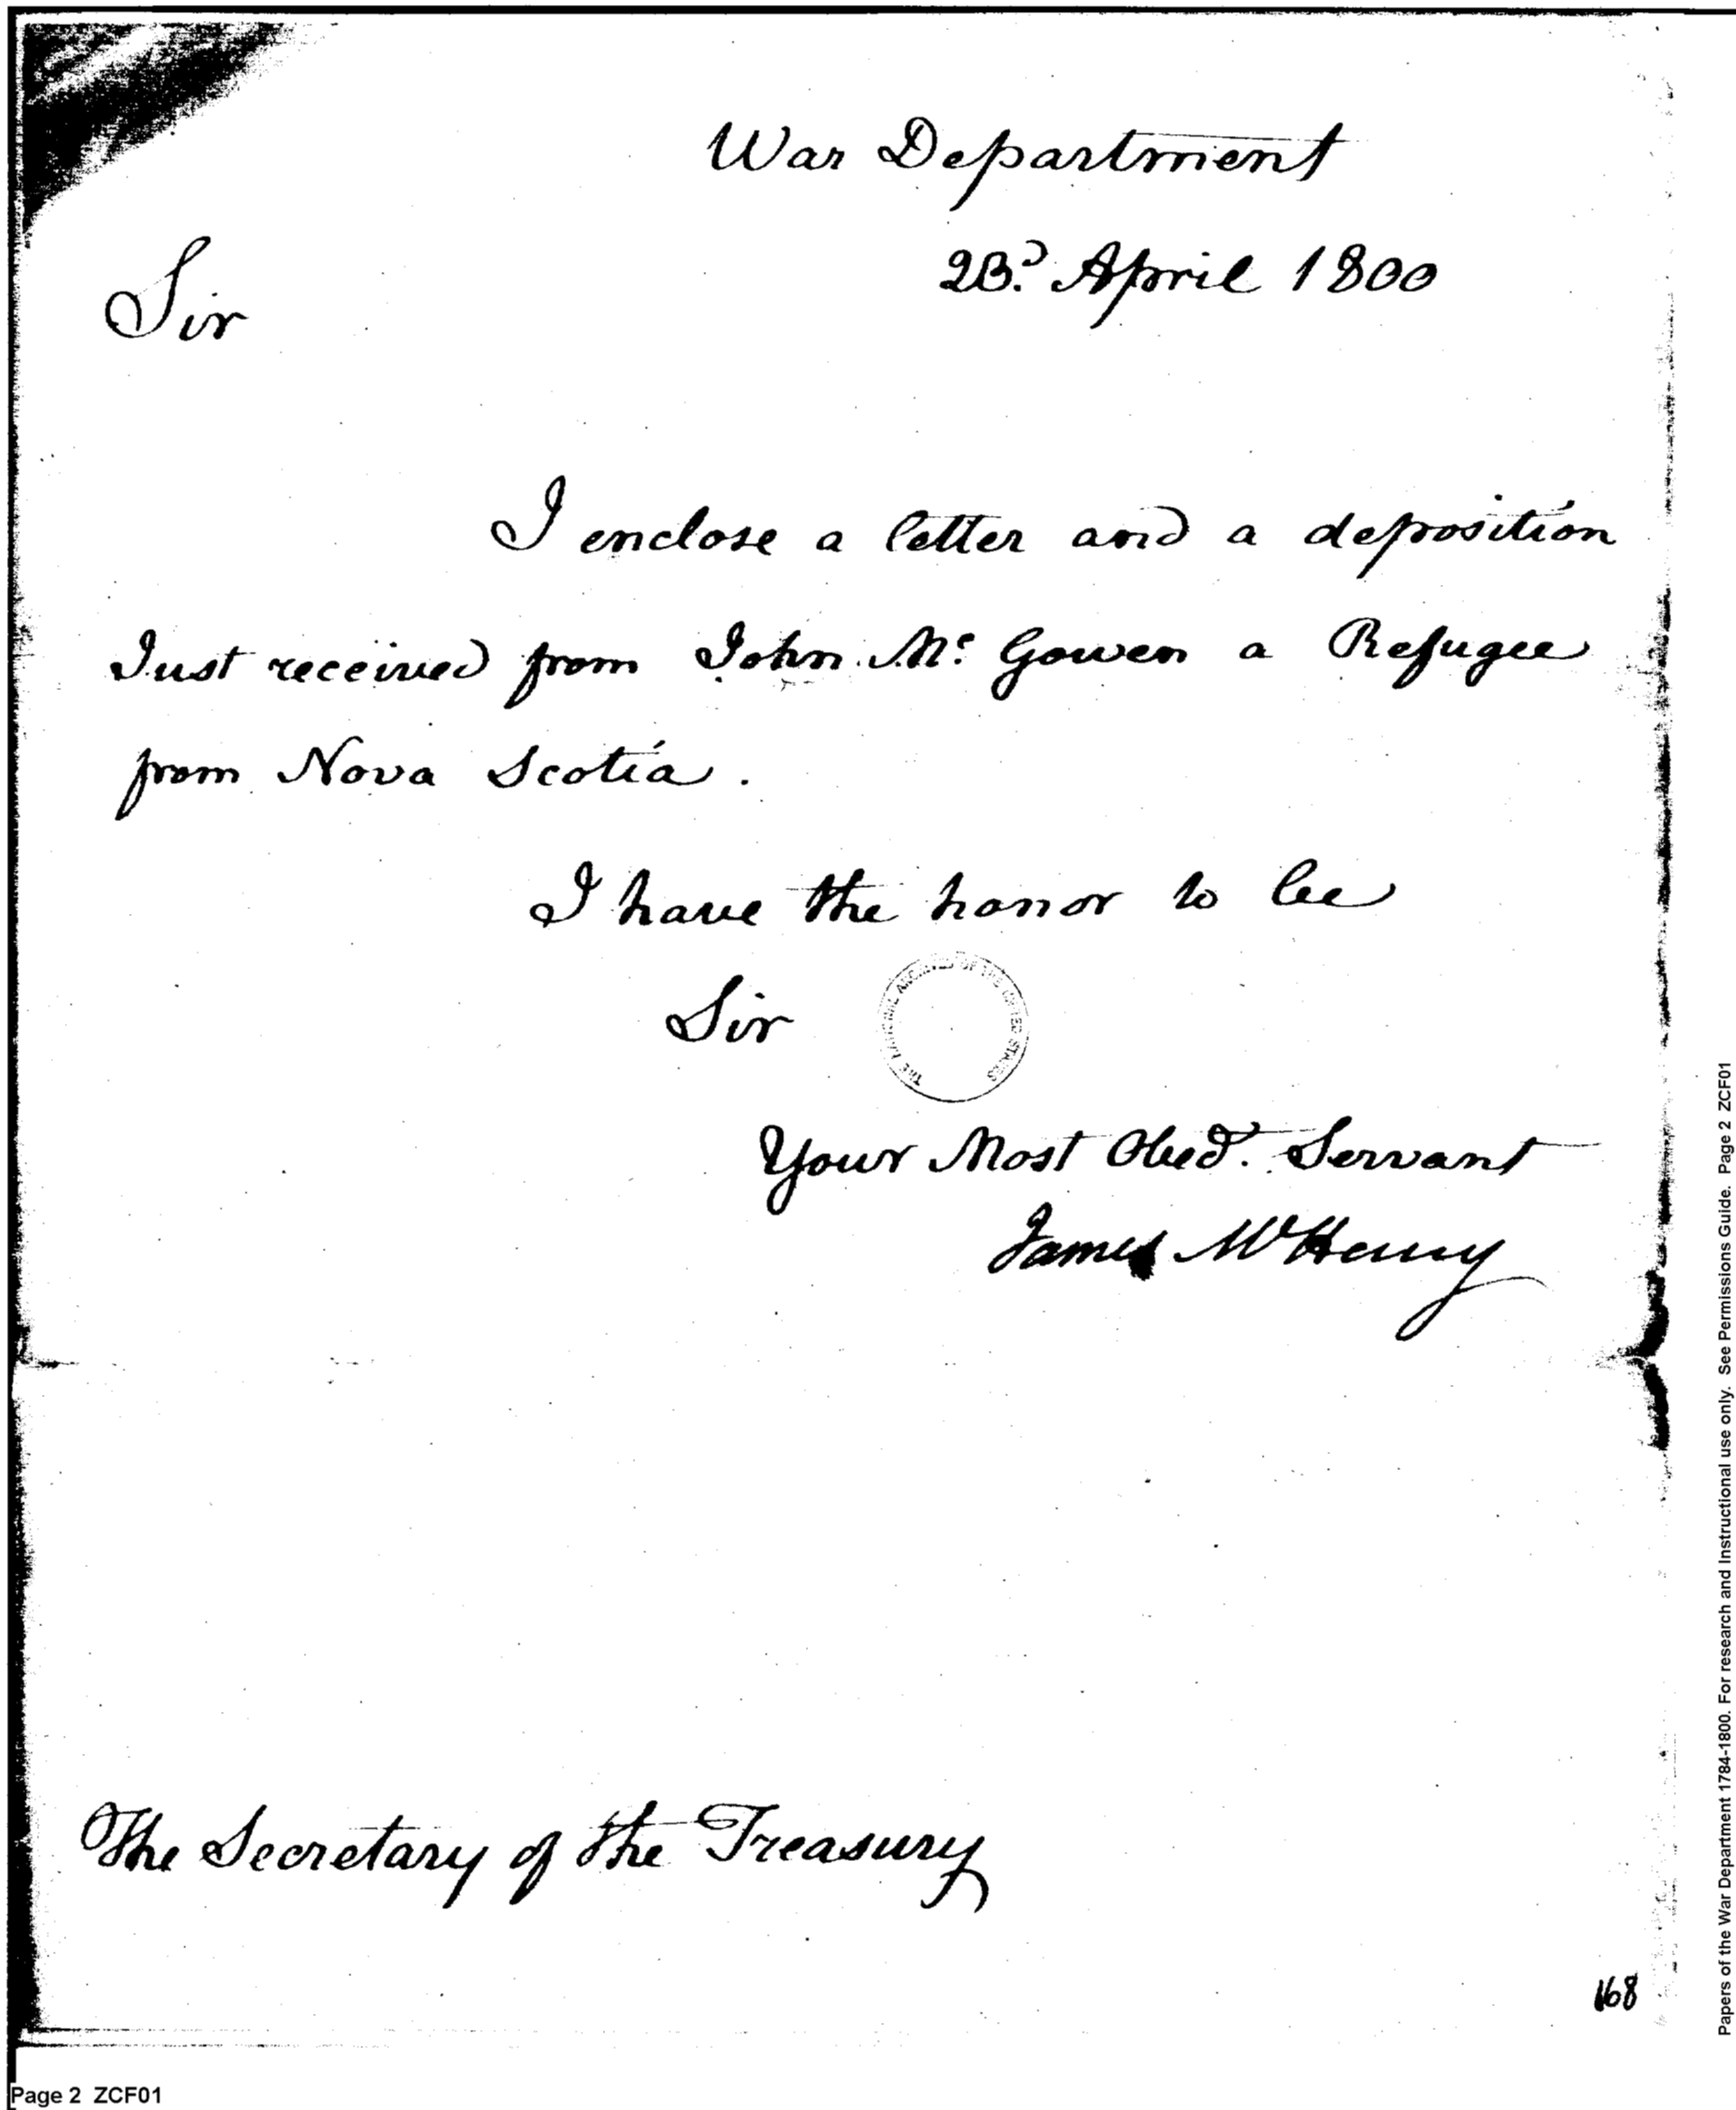 War Department
23.d April 1800
Sir
I enclose a letter and a deposition
Just received from John Mc. Gowen a Refugee
from Nova Scotia.
I have the honor to be
Sir
THE NATIONAL ARCHIVES OF THE UNITED STATES
Your Most Obed.t Servant
James McHenry
The Secretary of the Treasury
168
Page 2 ZCF01
Papers of the War Department 1784-1800. For research and Instructional use only. See Permissions Guide. Page 2 ZCF01